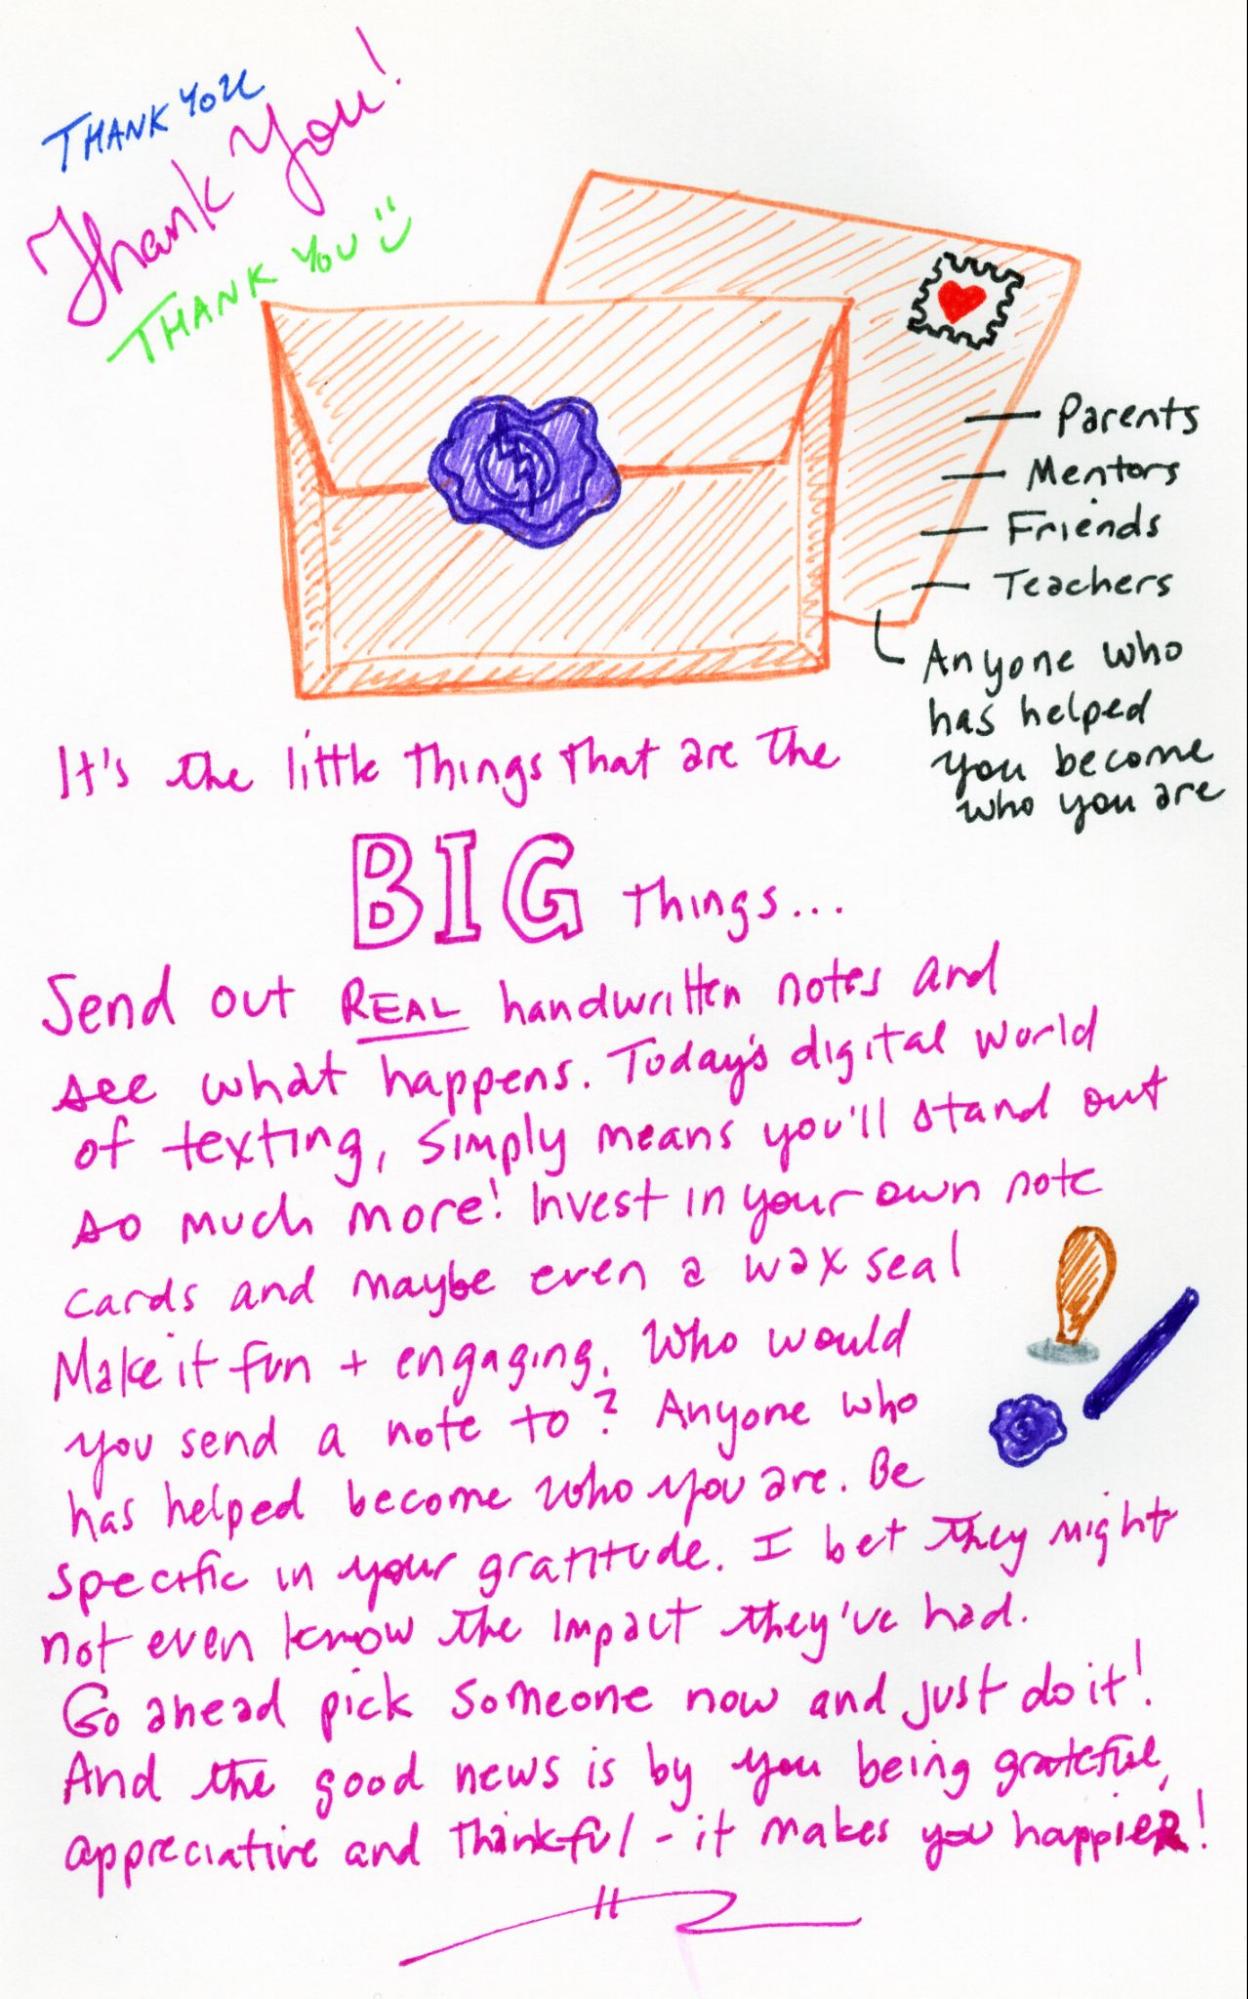 THANK YOU
Thank You!
THANK YOU
Parents
Mentors
Friends
Teachers
Anyone who
has helped
you become
who you are
It's the little things that are the
BIG things...
Send out REAL handwritten notes and
see what happens. Today's digital world
of texting, simply means you'll stand out
so much more! Invest in your own note
cards and maybe even a wax seal
Make it fun + engaging. Who would
you send a note to? Anyone who
has helped become who you are. Be
specific in your gratitude. I bet they might
not even know the impact they've had.
Go ahead pick someone now and just do it!
And the good news is by you being grateful,
appreciative and thankful - it makes you happier!